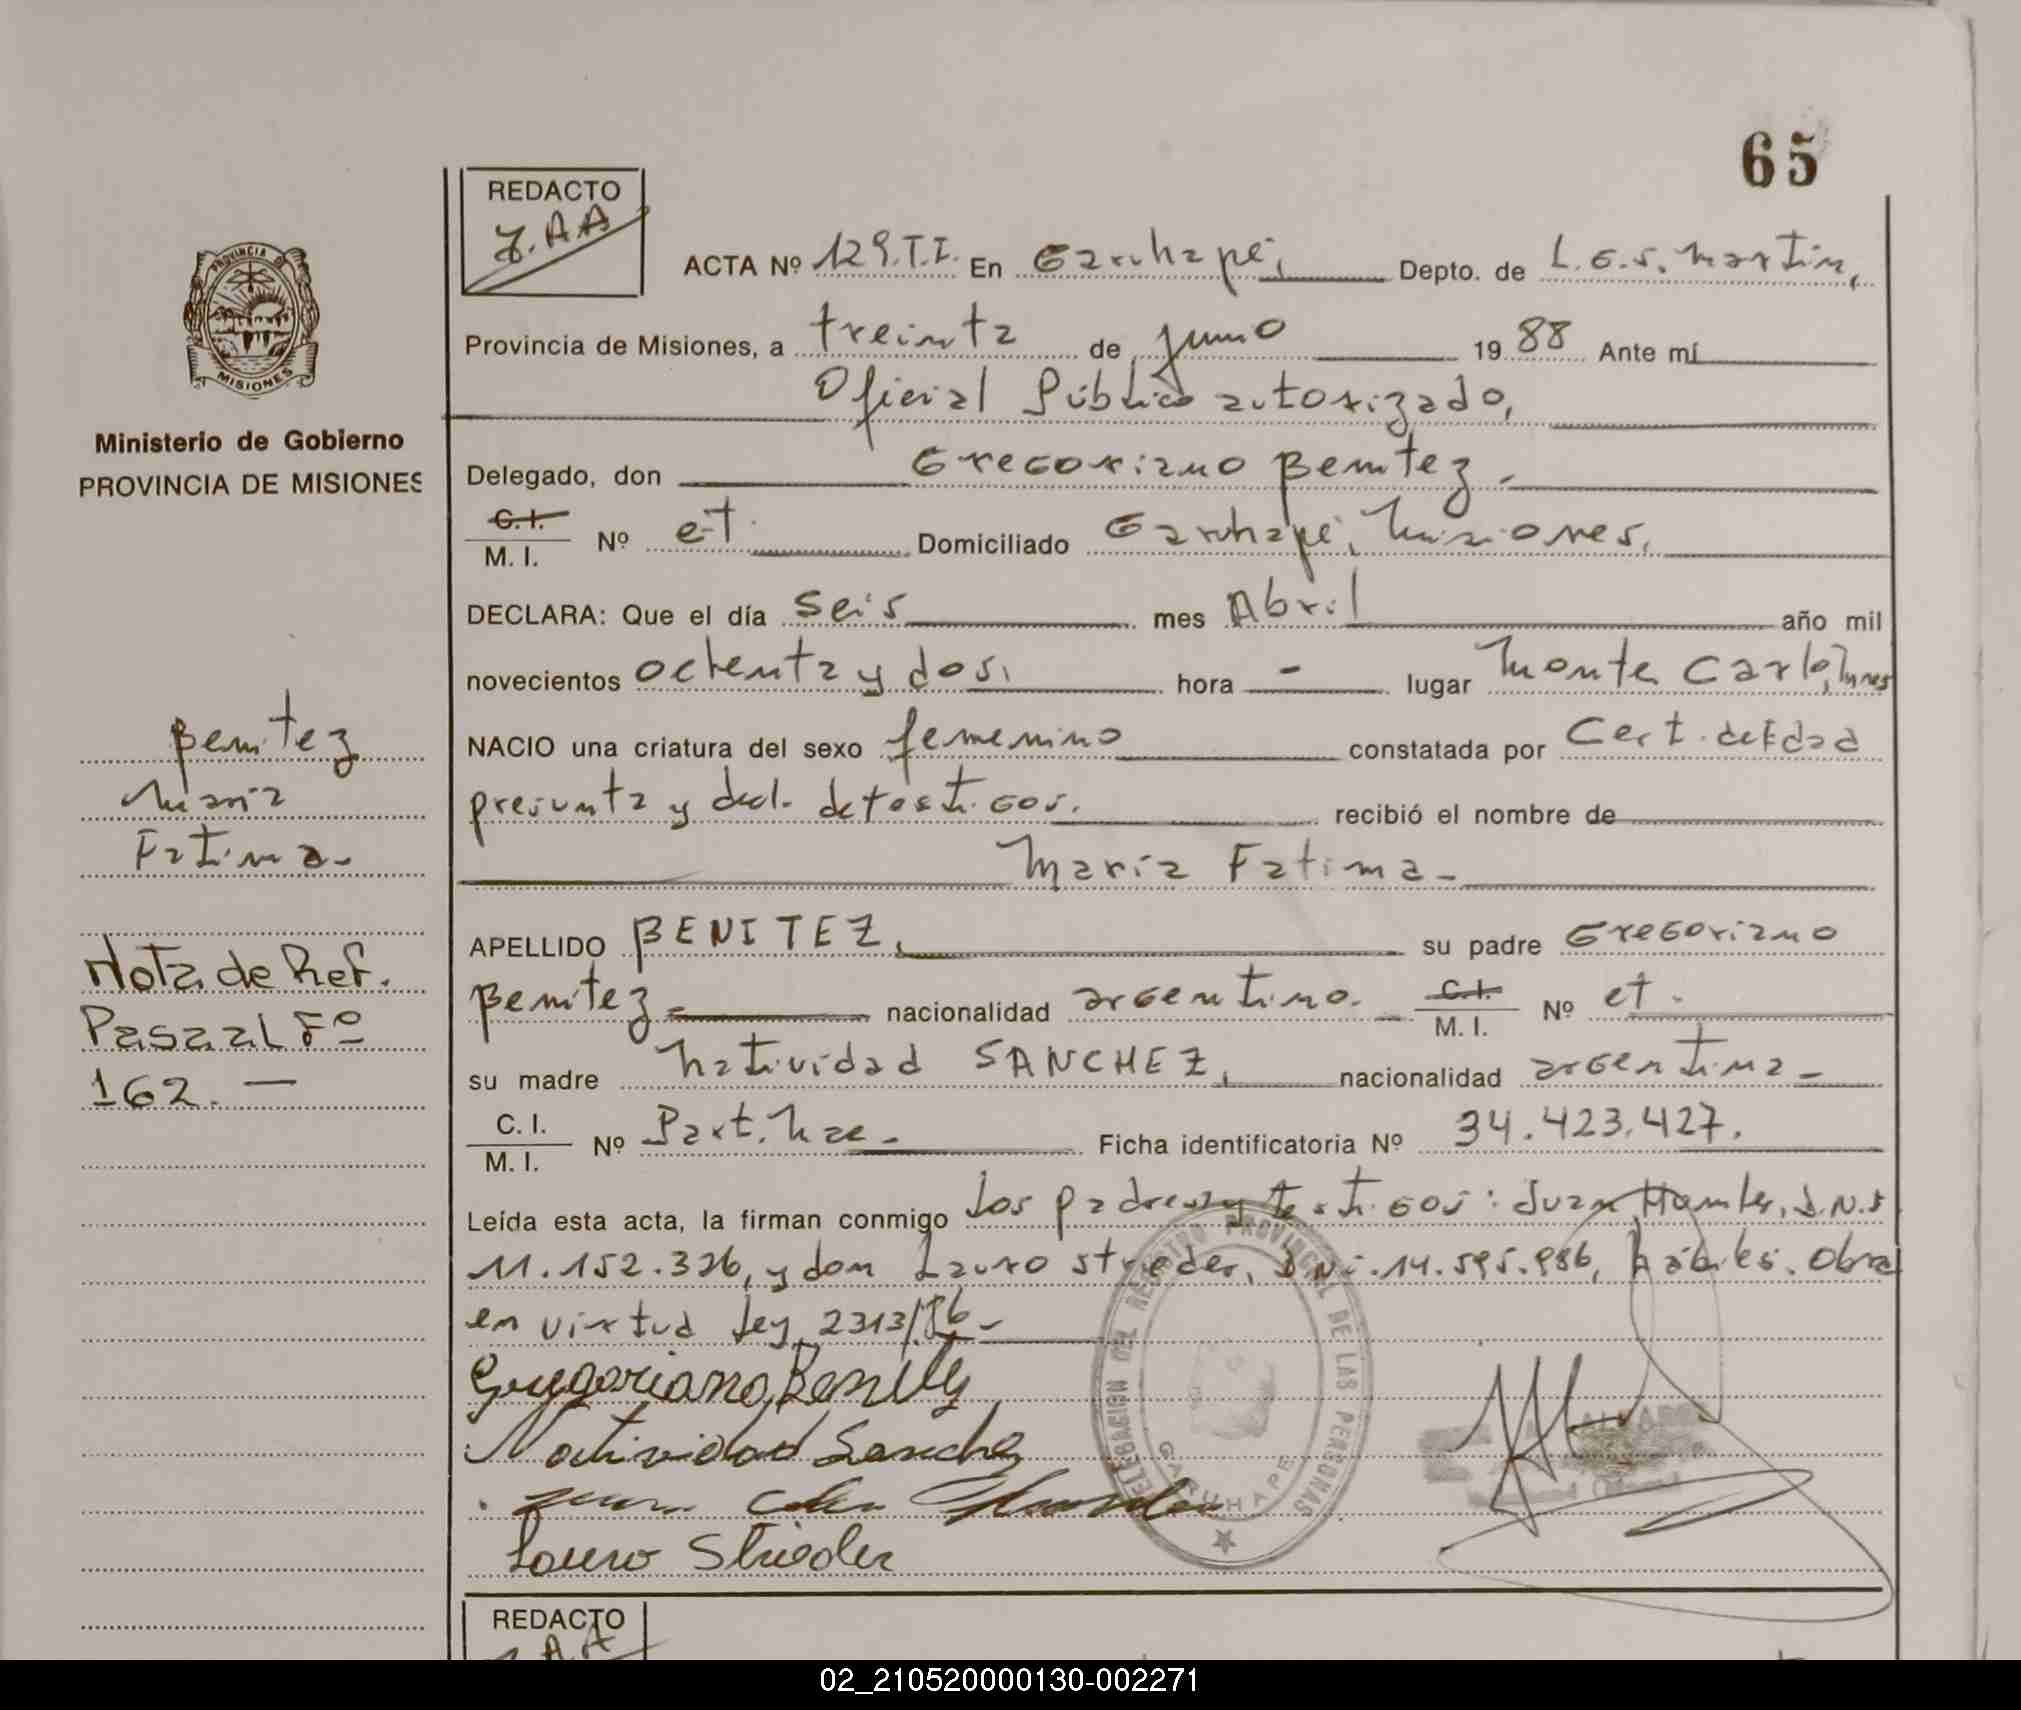 65
REDACTO
J.AA
ACTA Nº 129.T.I. En Garuhapé, Depto. de L.G.S. Martin,
Provincia de Misiones, a treinta de junio 1988 Ante mí
Oficial Público autorizado,
Delegado, don Gregoriano Benitez
C.I. M. I. Nº et. Domiciliado Garuhapé, Misiones,
DECLARA: Que el día seis mes Abril año mil
novecientos ochenta y dos, hora - lugar Monte Carlo, Mnes
NACIO una criatura del sexo femenino constatada por Cert. de Edad
presunta y decl. de testigos. recibió el nombre de
María Fatima-
APELLIDO BENITEZ, su padre Gregoriano
Benitez- nacionalidad argentino. C.I. M. I. Nº et.
su madre Natividad SANCHEZ, nacionalidad argentina-
C. I. M. I. Nº Part. Nac. Ficha identificatoria Nº 34.423.427.
Leída esta acta, la firman conmigo Los padres y testigos: Juan D.N.I
11.152.326, y don Lauro Strieder, D.N.I.14.595.986, hábiles. Obra
en virtud Ley 2313/86-
Gregoriano Benitez
Natividad Sanchez
Lauro Strieder
DELEGACION DEL REGISTRO PROVINCIAL DE LAS PERSONAS
GARUHAPE
PROVINCIA DE
MISIONES
Ministerio de Gobierno
PROVINCIA DE MISIONES
Benitez
Maria
Fatima-
Nota de Ref.
Pasa al Fº
162.—
REDACTO
02_210520000130-002271